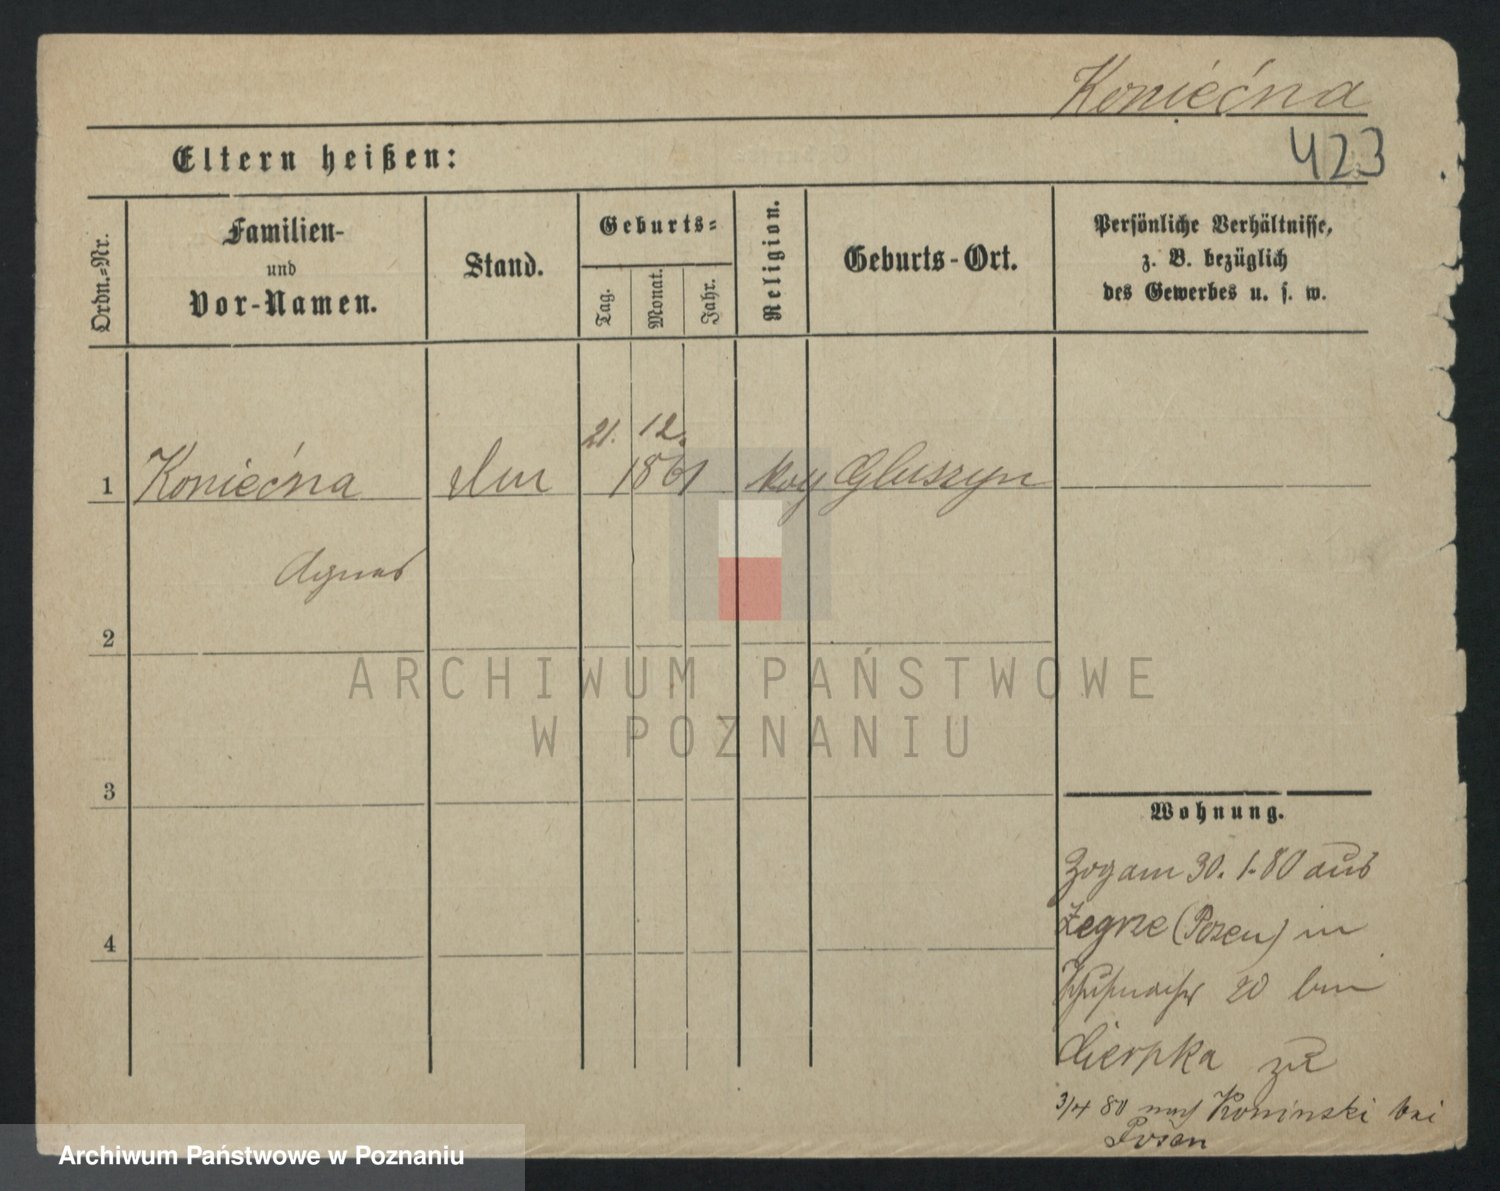 Koniećna
423
Eltern heißen:
Ordn.-Nr.
Familien-
und
Vor-Namen.
Stand.
Geburts-
Tag.
Monat.
Jahr.
Religion.
Geburts-Ort.
Persönliche Verhältnisse,
z. B. bezüglich
des Gewerbes u. s. w.
21. 12.
1 Koniećna 1861 Gluszyn
Agnes
2
3
4
Wohnung.
Zog am 30. 1. 80 aus
Zegrze (Posen) in
20 bei
Cierpka zu
3/4 80 nach Kominski bei
Posen
ARCHIWUM PAŃSTWOWE
W POZNANIU
Archiwum Państwowe w Poznaniu